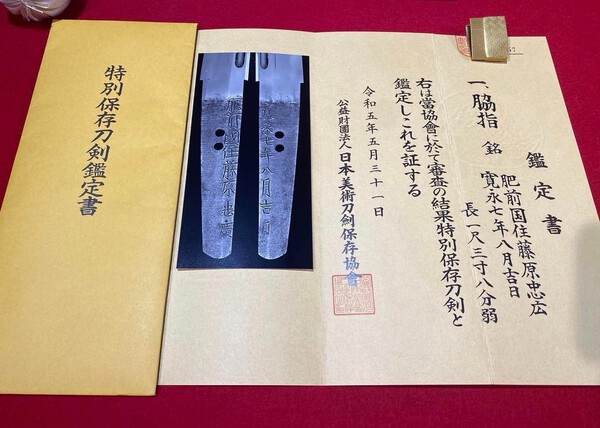 特別保存刀剣鑑定書
鑑定書
一、脇指 銘
肥前国住藤原忠広
寛永七年八月吉日
長一尺三寸八分弱
右は當協會に於て審査の結果特別保存刀剣と
鑑定しこれを証する
令和五年五月三十一日
公益財團法人日本美術刀剣保存協會
寛永七年八月吉日
肥前國住藤原忠廣